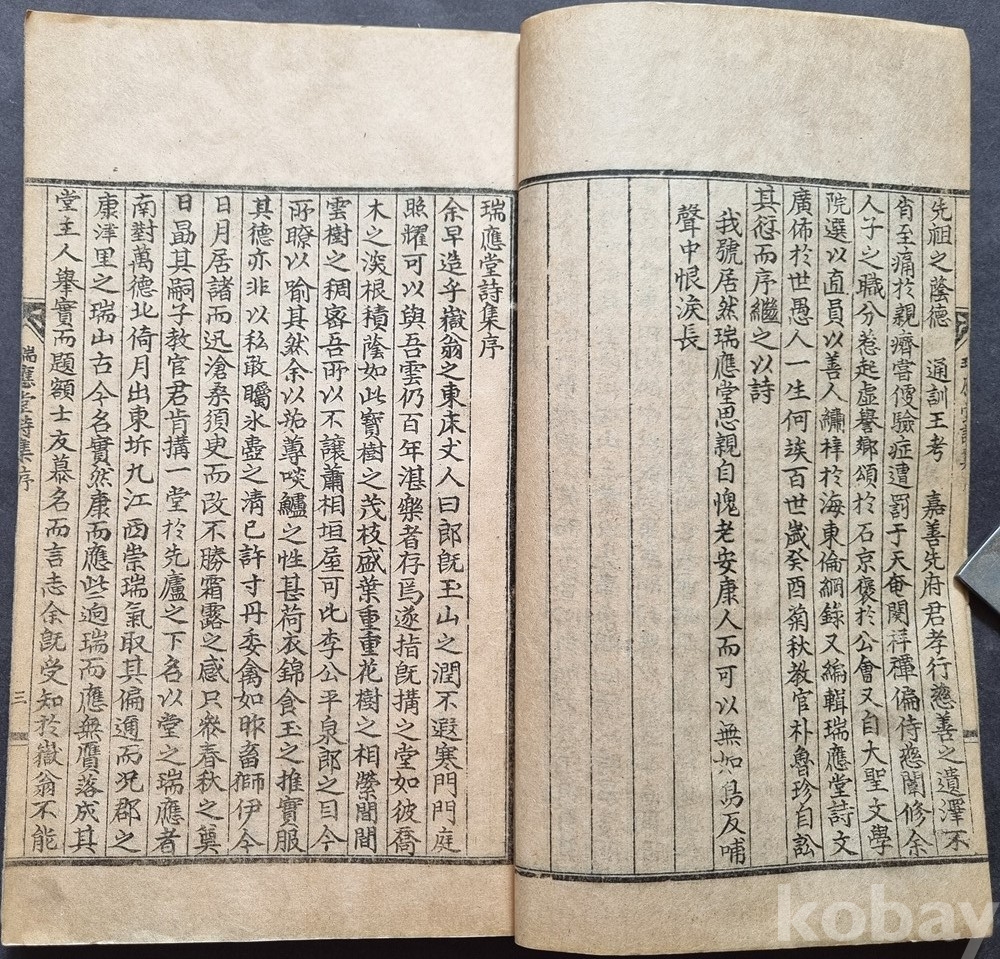 先祖之蔭德 通訓王考 嘉善先府君孝行慈善之遺澤不
肖至痛於親癠嘗僾驗症遭罰于天奄関祥禫偏侍慈闈修余
人子之職分惹起虛譽鄉頌於石京褒於公會又自大聖文學
院選以直員以善人繡梓於海東倫綱錄又編輯瑞應堂詩文
廣佈於世愚人一生何竢百世歲癸酉菊秋教官朴魯珍自訟
其愆而序繼之以詩
我號居然瑞應堂思親自愧老安康人而可以無如鳥反哺
聲中恨淚長
瑞應堂詩集序
余早造乎嶽翁之東床丈人曰郎旣玉山之潤不遐寒門門庭
照耀可以與吾雲仍百年湛樂者存焉遂指旣搆之堂如彼喬
木之深根積蔭如此寶樹之茂枝盛葉重重花樹之相縈間間
雲樹之稠密吾所以不讓蕭相垣屋可比李公平泉郎之曰今
所瞭以喻其然余以姑尊啖鱸之性甚荷衣錦食玉之推實服
其德亦非以私敢矚氷壺之淸已許寸丹委禽如昨畜獅伊今
日月居諸而迅滄桑須臾而改不勝霜露之感只參春秋之奠
日勗其嗣子教官君肯搆一堂於先廬之下名以堂之瑞應者
南對萬德北倚月出東坼九江西崇瑞氣取其偏通而况郡之
康津里之瑞山古今名實然康而應些迴瑞而應無贗落成其
堂主人舉實而題額士友慕名而言志余旣受知於嶽翁不能
瑞應堂詩集序
三
kobay